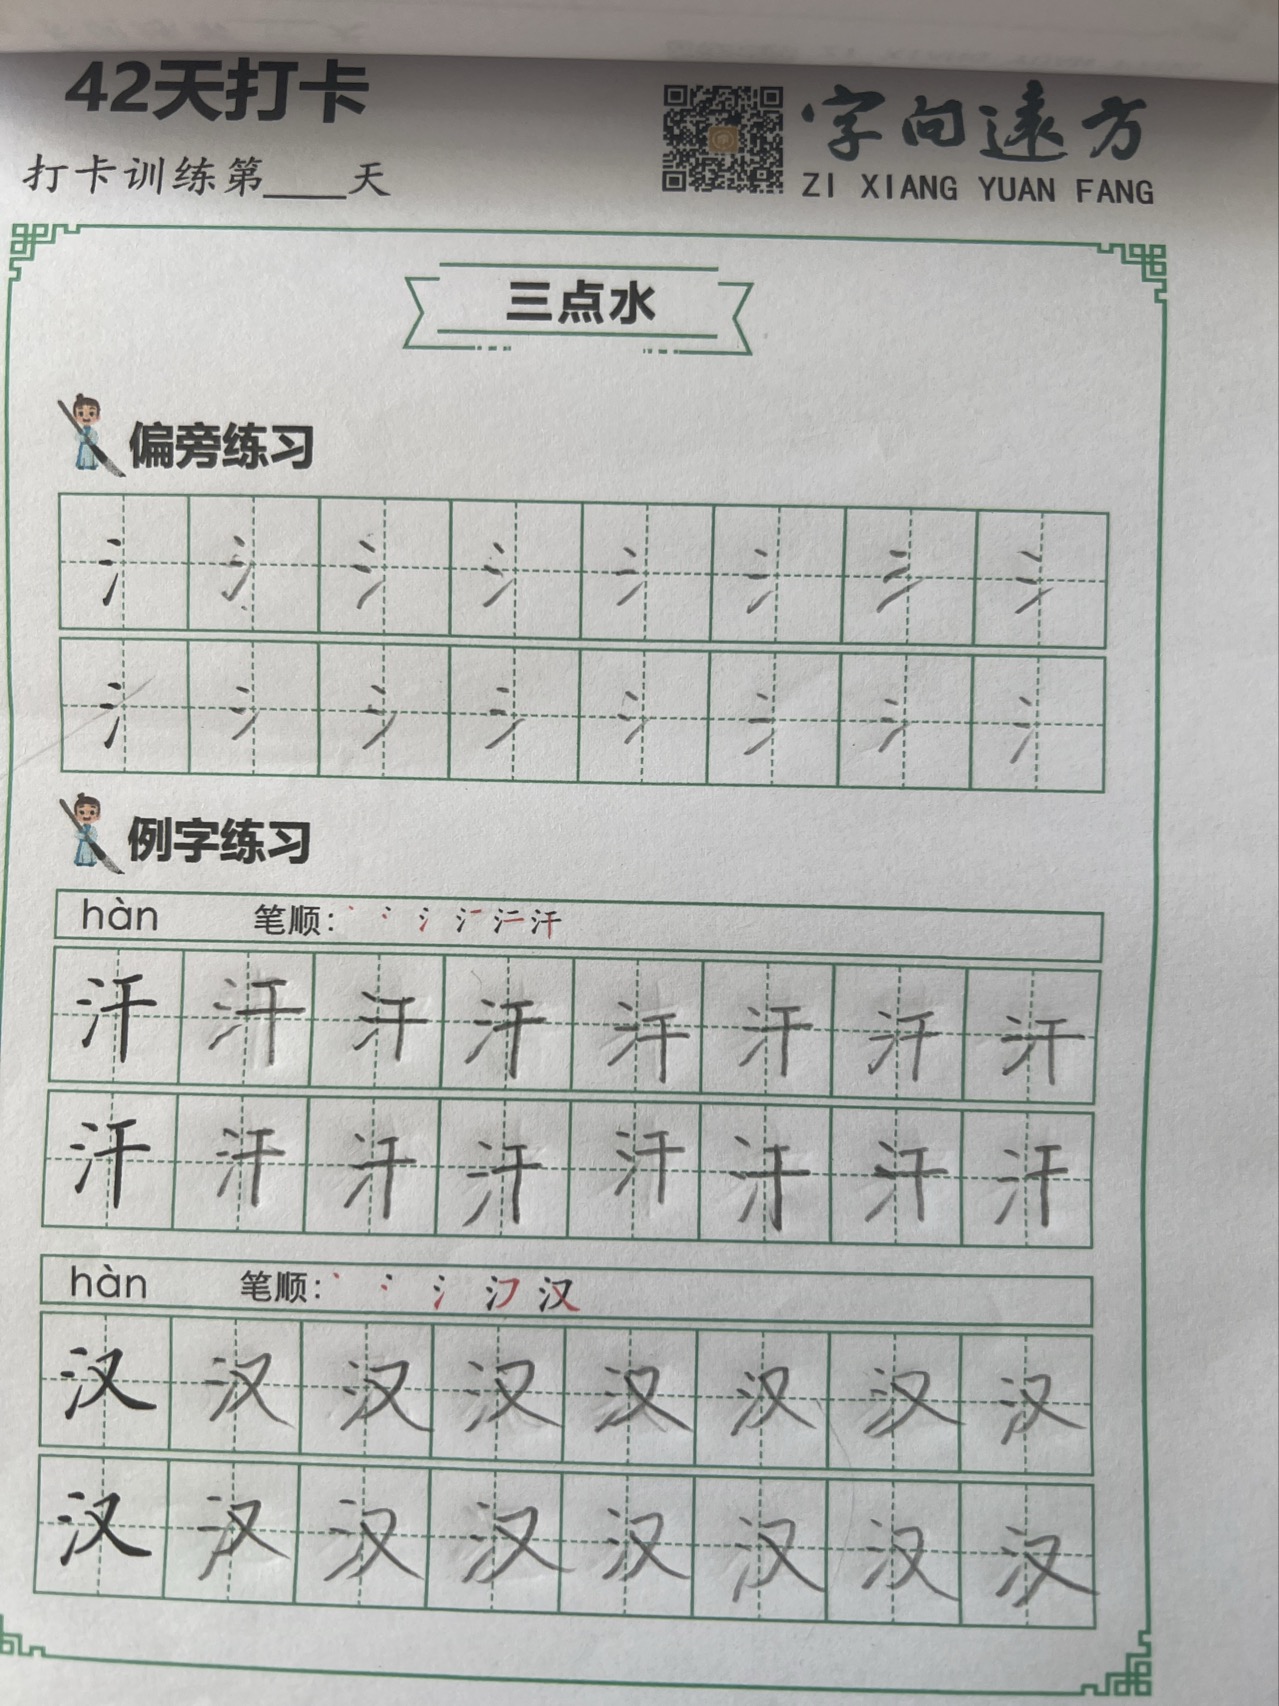 42天打卡
字向遠方
打卡训练第____天
ZI XIANG YUAN FANG
三点水
偏旁练习
氵 氵 氵 氵 氵 氵 氵 氵
氵 氵 氵 氵 氵 氵 氵 氵
例字练习
hàn 笔顺：
汗 汗 汗 汗 汗 汗 汗 汗
汗 汗 汗 汗 汗 汗 汗 汗
hàn 笔顺：
汉 汉 汉 汉 汉 汉 汉 汉
汉 汉 汉 汉 汉 汉 汉 汉